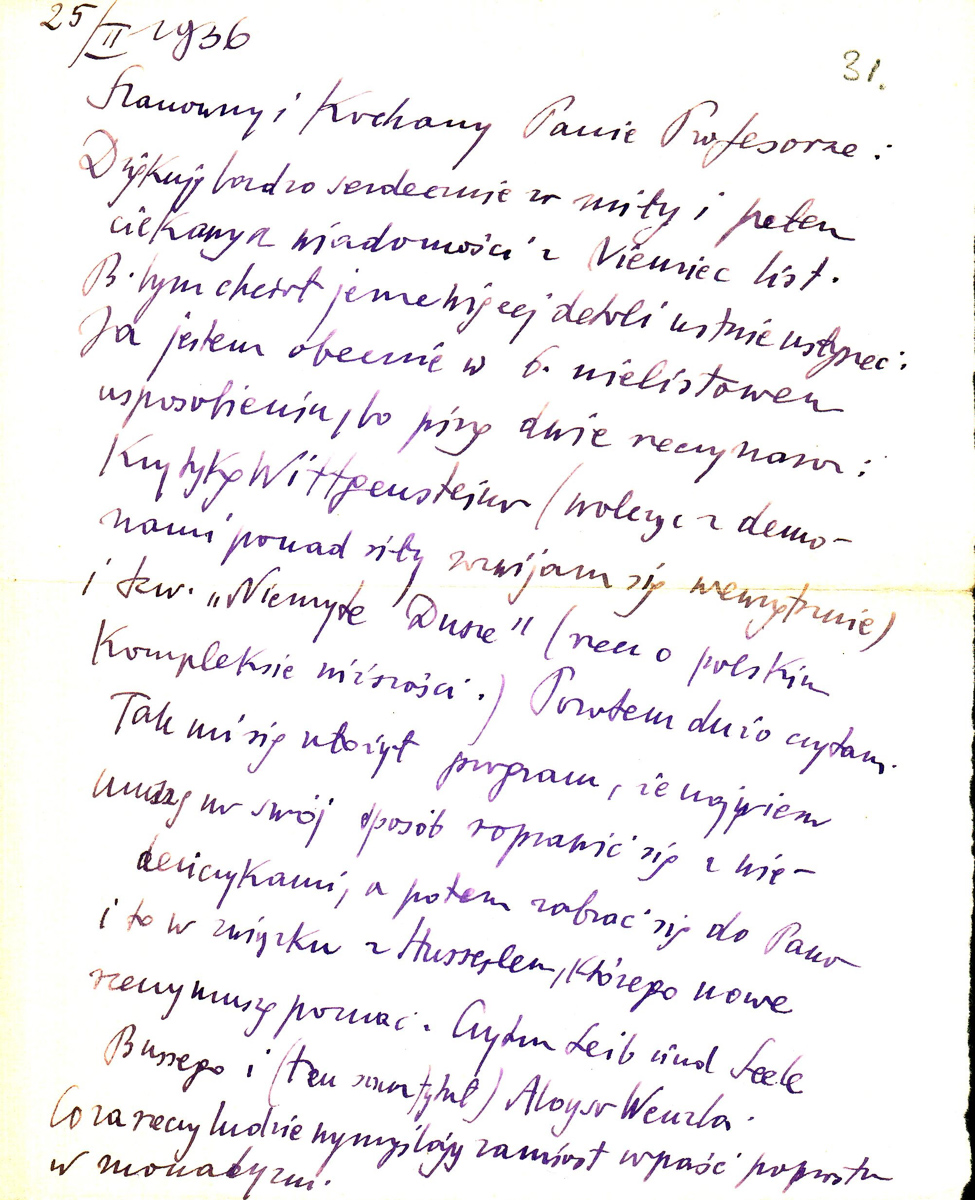 25/II 1936
31.
Szanowny i Kochany Panie Profesorze:
Dziękuję bardzo serdecznie za miły i pełen
ciekawych wiadomości z Niemiec list.
B. bym chciał jeszcze więcej detali ustnie usłyszeć:
Ja jestem obecnie w b. nielistowem
usposobieniu, bo piszę dwie rzeczy naraz:
Krytykę Wittgensteina (walcząc z demo-
nami ponad siły rozwijam się wewnętrznie)
i tzw. „Niemyte Dusze" (rzecz o polskim
Kompleksie niższości.) Pozatem dużo czytam.
Tak mi się ułożył program, że najpierw
muszę na swój sposób rozprawić się z wie-
deńczykami, a potem zabrać się do Pana
i to w związku z Husserlem, którego nowe
rzeczy muszę poznać. Czytam Leib und Seele
Bussego i (ten sam tytuł) Aloysa Wenzla.
Co za rzeczy ludzie wymyślają zamiast wpaść poprostu
w monadyzm.